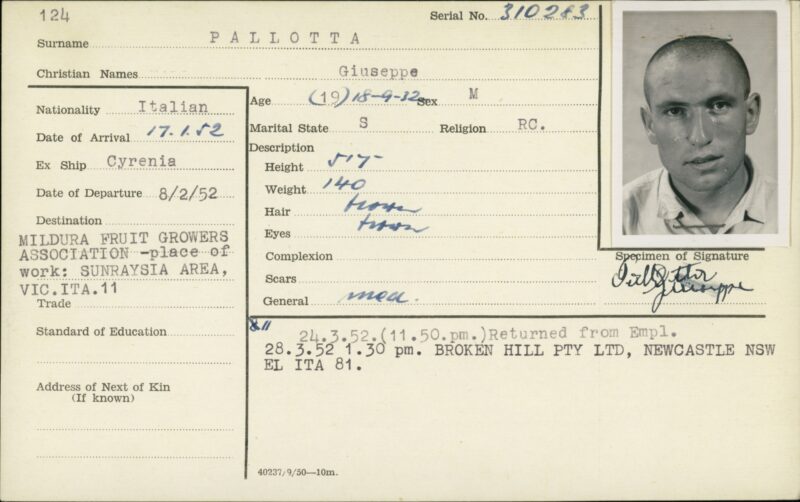 124
Serial No. 310283
Surname PALLOTTA
Christian Names Giuseppe
Nationality Italian
Date of Arrival 17.1.52
Ex Ship Cyrenia
Date of Departure 8/2/52
Destination
MILDURA FRUIT GROWERS
ASSOCIATION -place of
work: SUNRAYSIA AREA,
VIC.ITA.11
Trade
Standard of Education
Address of Next of Kin
(If known)
Age (19) 18-9-32 Sex M
Marital State S Religion RC.
Description
Height 5'7"
Weight 140
Hair brown
Eyes brown
Complexion
Scars
General med.
Specimen of Signature
Giuseppe
24.3.52.(11.50.pm.)Returned from Empl.
28.3.52 1.30 pm. BROKEN HILL PTY LTD, NEWCASTLE NSW
EL ITA 81.
40237/9/50—10m.